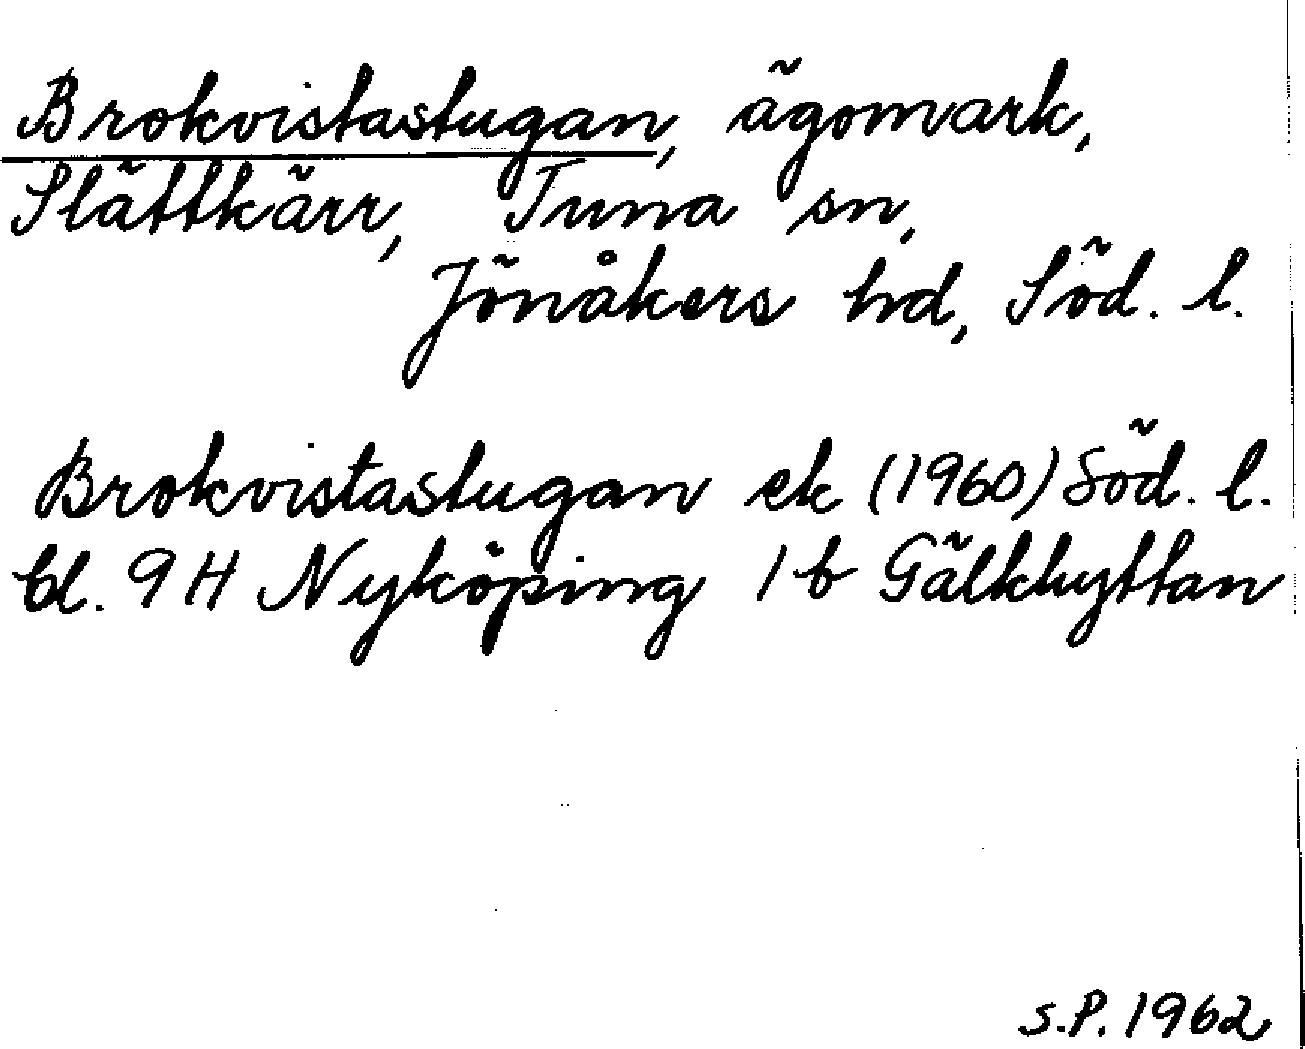 Brokvistastugan, ägomark,
Slättkärr, Tuna sn,
Jönåkers hd, Söd. l.
Brokvistastugan ek (1960) Söd. l.
bl. 9 H Nyköping 1 b Gälkhyttan
S.P. 1962